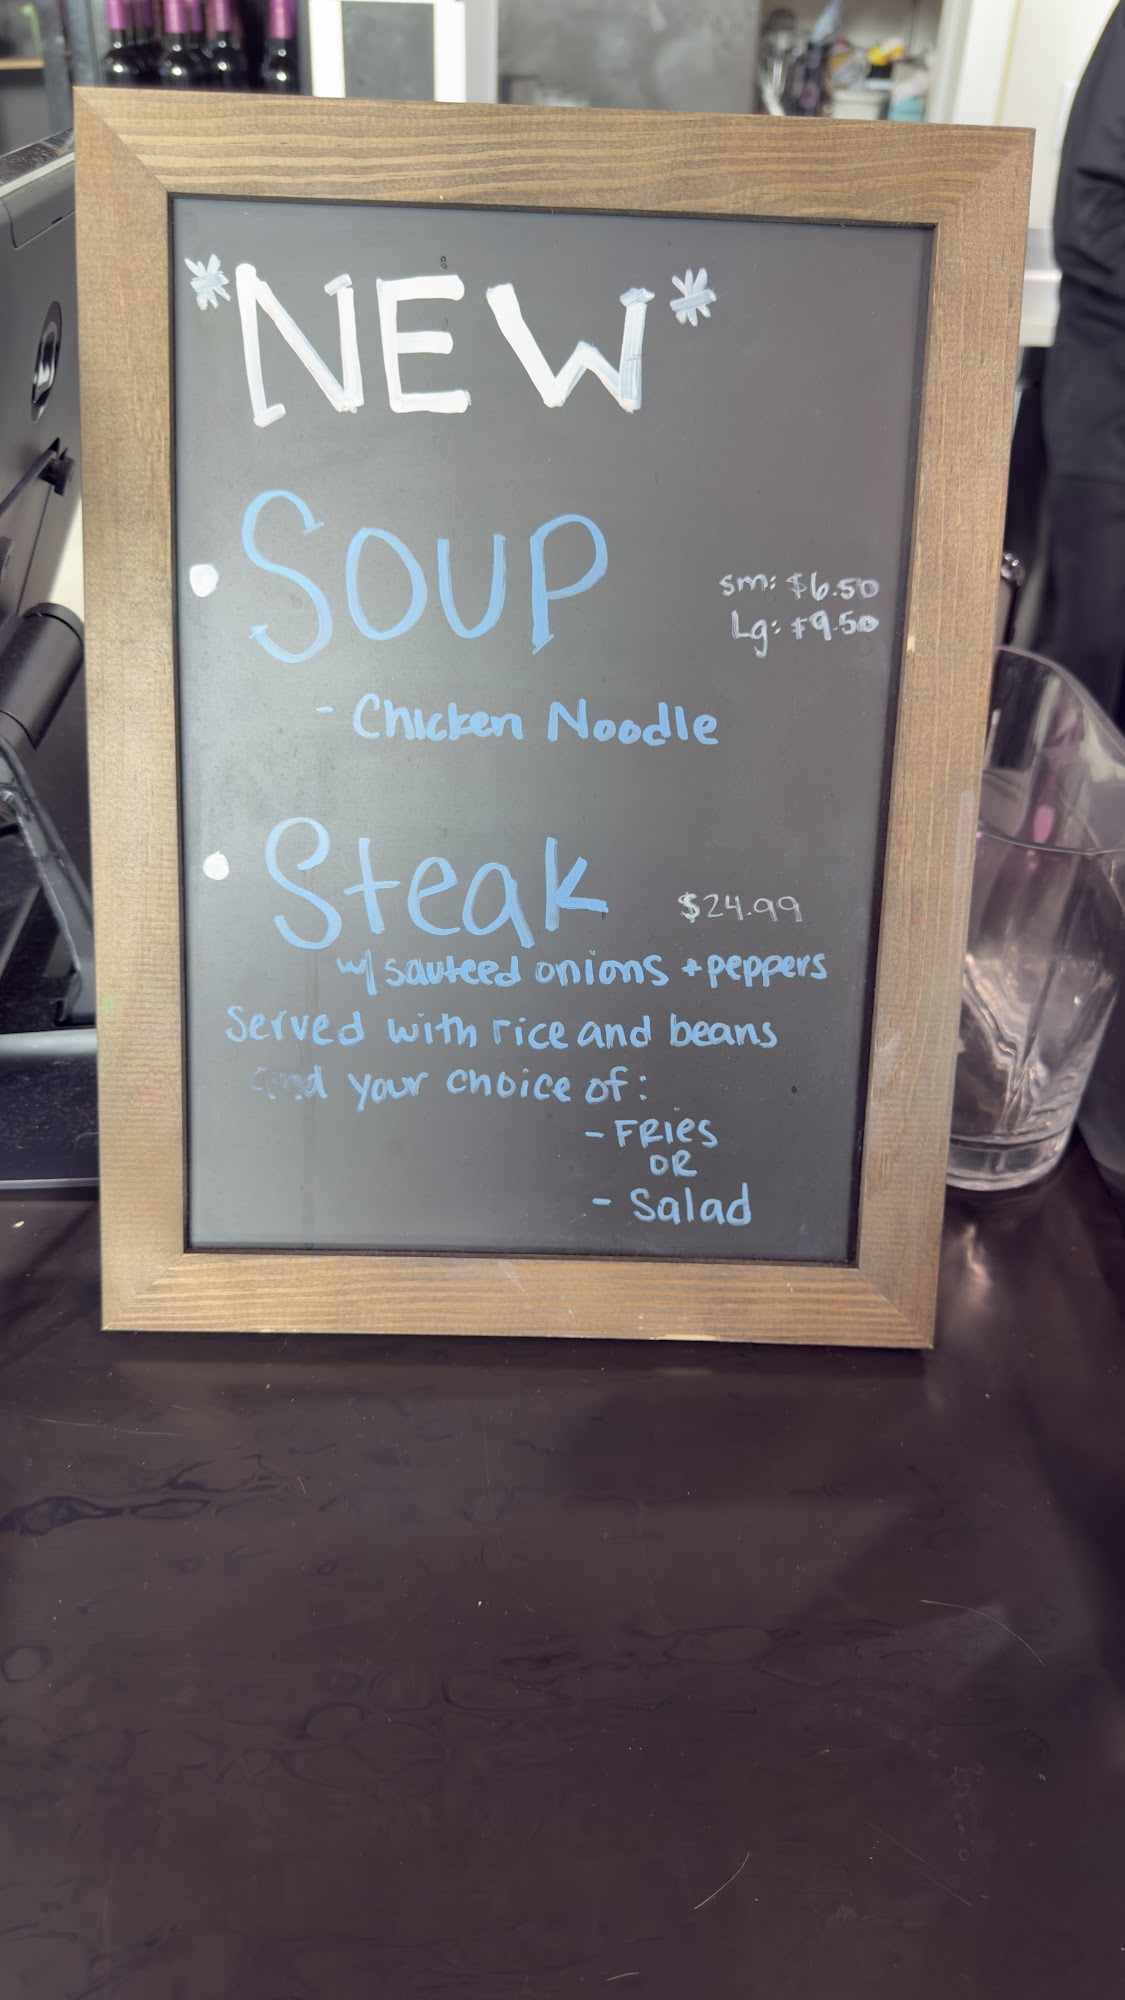 *NEW*
SOUP
sm: $6.50
Lg: $9.50
- Chicken Noodle
Steak $24.99
w/ sauteed onions + peppers
Served with rice and beans
and your choice of:
- FRies
OR
- Salad